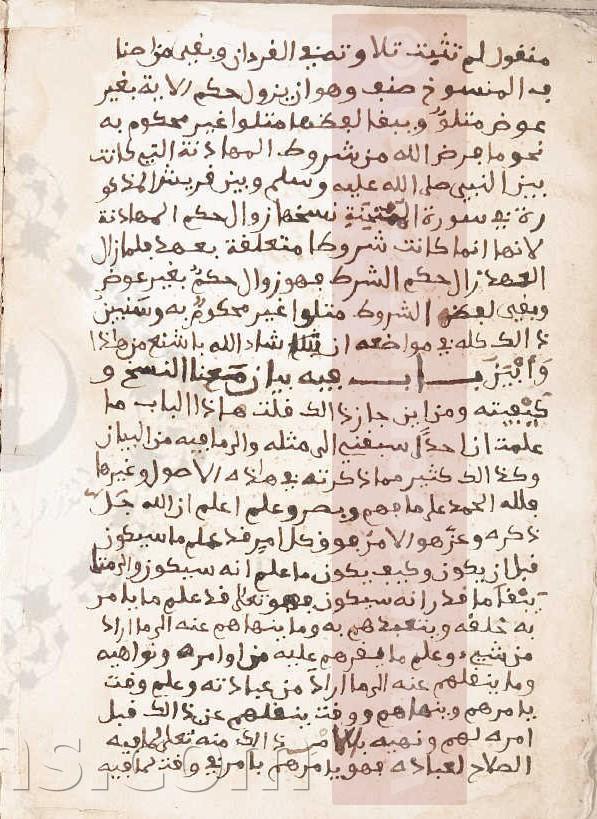 منقول لم تثبت تلاوته في القرءان وبقي من احنا
به المنسوخ صنف وهو ان يزول حكم الاية بغير
عوض متلوٌ ويبقا لفظها متلوا غير محكوم به
نحو ما فرض الله من شروط المهادنة التي كانت
بين النبي صلى الله عليه وسلم وبين قريش المذكو
رة في سورة الممتحنة نسخها زوال حكم المهادنة
لانها انما كانت شروطا متعلقة بعهد فلما زال
العهد زال حكم الشرط فهو زوال حكمٌ بغير عوض
وبقي لفظ الشروط متلوا غير محكومٌ به وسنبين
ذالك كله في مواضعه ان شاء الله باشبع من هاذا
وأبين باب فيه بيان معنا النسخ و
كيفيته ومن اين جاز ذالك قلت هاذا الباب ما
علمت ان احداً سبقني الى مثله والى ما فيه من البيان
وكذالك كثير مما ذكرته في هاذه الاصول وغيرها
فلله الحمد على ما فهم وبصر وعلم اعلم ان الله جلّ
ذكره وعزّ هو الامر فوق كل امرٍ قد علم ما سيكون
قبل ان يكون وكيف يكون ما علم انه سيكون والى متا
يبقا ما قدر انه سيكون فهو تعالى قد علم ما يامر
به خلقه ويتعبدهم به وما ينهاهم عنه الى ما اراد
من شيء وعلم ما يقرهم عليه من اوامره ونواهيه
وما ينقلهم عنه الى ما اراد من عبادته وعلم وقت
يامرهم وينهاهم ووقت ينقلهم عن ذالك قبل
امره لهم ونهيه بلا امد ذالك منه تعلى لما فيه
الصلاح لعباده فهو يامرهم بامر في وقت لما فيه
ns.com